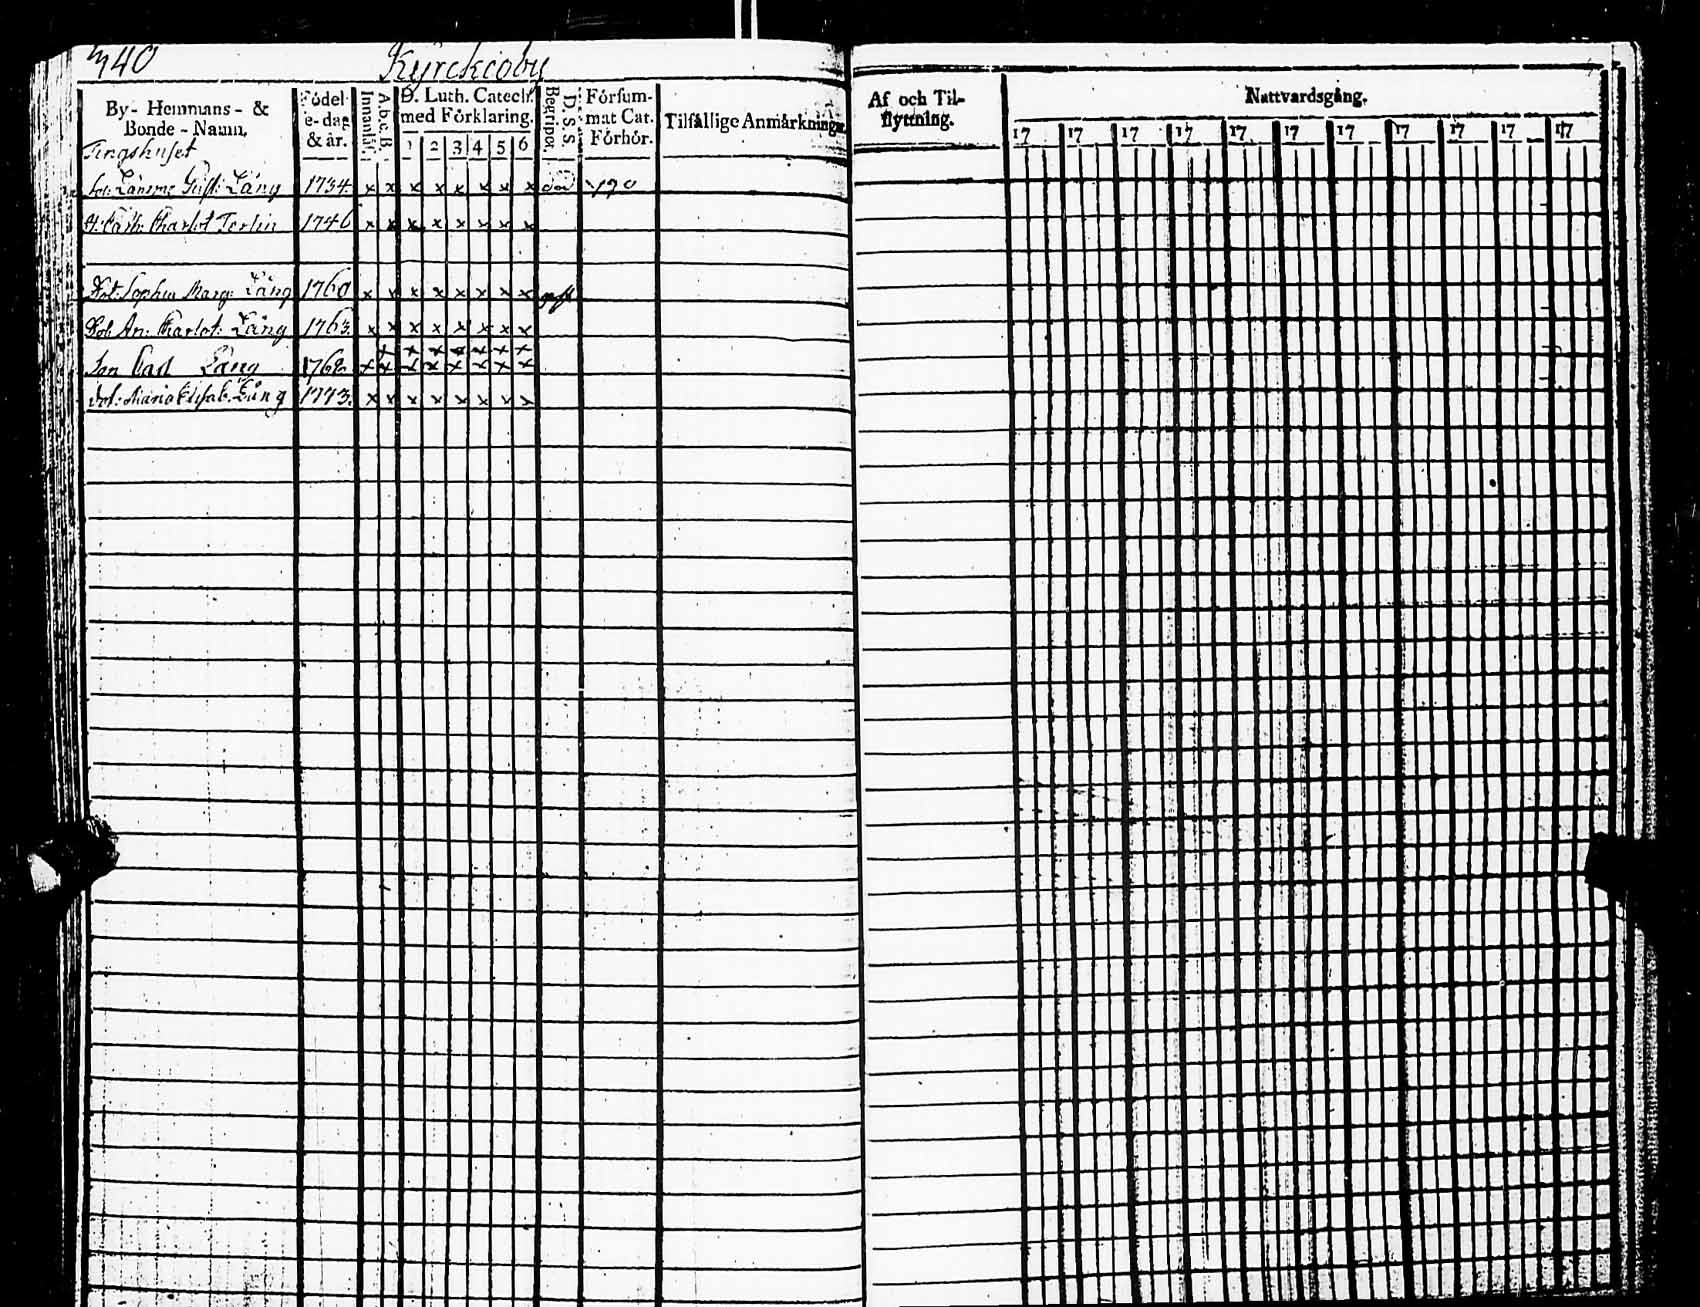 340 Kyrckioby
By- Hemmans- & Bonde-Namn. Födelse-dag & år. Innanläs. A.b.c.B. D. Luth. Catech. med Förklaring. 1 2 3 4 5 6 Begriper. D.S.S. Försummat Cat. Förhör. Tilfällige Anmärkningar Af och Tilflyttning. Nattvardsgång. 17 17 17 17 17 17 17 17 17 17 17
Tingshuset
Länsme Gust: Lång 1734. x x x x x x x x död 790
H: Cath: Charlot 1746 x x x x x x x x
Dot: Sophia Marg: Lång 1760 x x x x x x x x gift
Dot: An: Charlot: Lång 1763. x x x x x x x x
x x x x x x x
Son Carl Lång 1762 x x x x x x x x
Dot: Maria Elisab. Lång 1773. x x x x x x x x